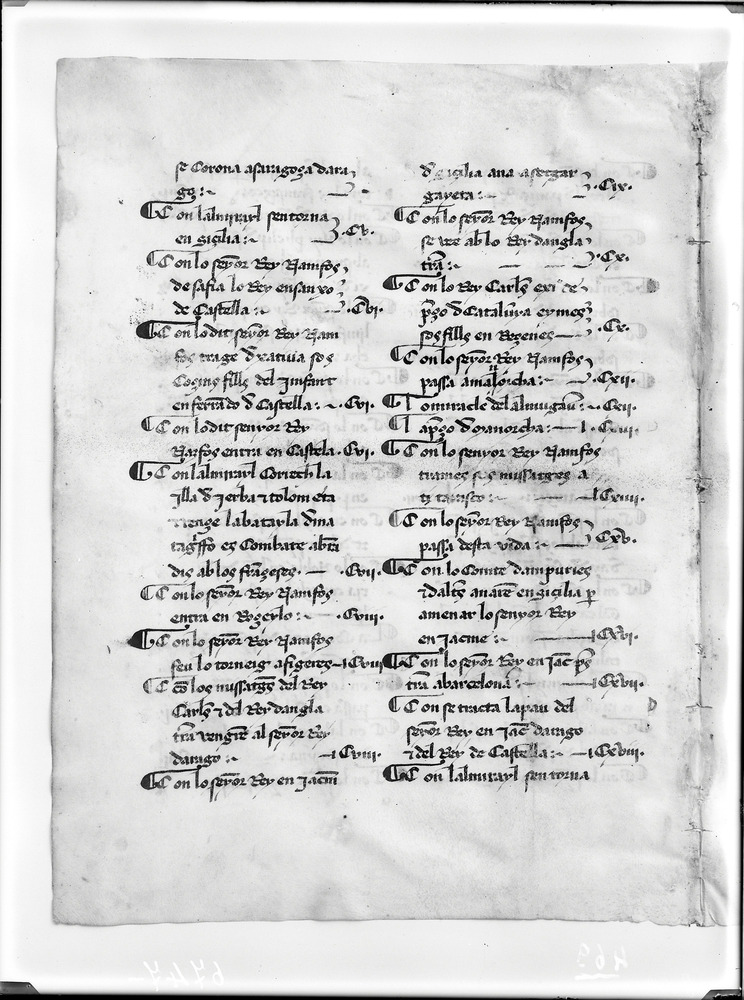 se Corona asaragoça dara
go:~
Con lalmirayl sentorna
en sicilia:~ .Cv.
Con lo seyor Rey Namfos
desafia lo Rey ensanxo
de Castella:~ .Cvi.
Con lo dit seyor Rey Nam
fos trage dxativa sos
Cosins fills del Infant
en ferrado d Castella:~ .Cvi.
Con lo dit senyor Rey
Namfos entra en Castela .Cvi.
Con lalmirayl Correch la
Illa d Jerba 7 tolometa
7 venge la batayla dina
e Combate
ab los frãçeses. .Cvii.
Con lo seyor Rey Namfos
entra en Rogeylo:~ .Cviii.
Con lo seyor Rey Namfos
feu lo torneig afigeres .Cviii.
Cõ los missatgs del Rey
Carls 7 dl Rey dangla
tra vengrē al seyor Rey
darago:~ .Cviii.
Con lo seyor Rey en Jacm
d sicilia ana asetgar
gayeta:~ .Cix.
Con lo seyor Rey Namfos
se vee ab lo Rey dangla
tra:~ .Cx.
Con lo Rey Carls exi de
pso d Catalunya e y mes
sos fills en Rogenes .Cx.
Con lo seyor Rey Namfos
passa amalorcha:~ .Cxii.
Lo miracle del almugav:~ .Cxii.
La pso d manorcha:~ .Cxiii.
Con lo senyor Rey Namfos
trames sos missatges a
tarasco:~ .Cxiiii.
Con lo seyor Rey Namfos
passa desta vida:~ .Cxv.
Con lo Comte dampuries
7 daltrs anarē en sicilia p
amenar lo senyor Rey
en Jacme:~ .Cxvi.
Con lo seyor Rey en Jac pes
tra abarcelona:~ .Cxvii.
Con se tracta la pau del
seyor Rey en Jac darago
7 del Rey de Castella:~ .Cxviii.
Con lalmirayl sentorna
6747
469